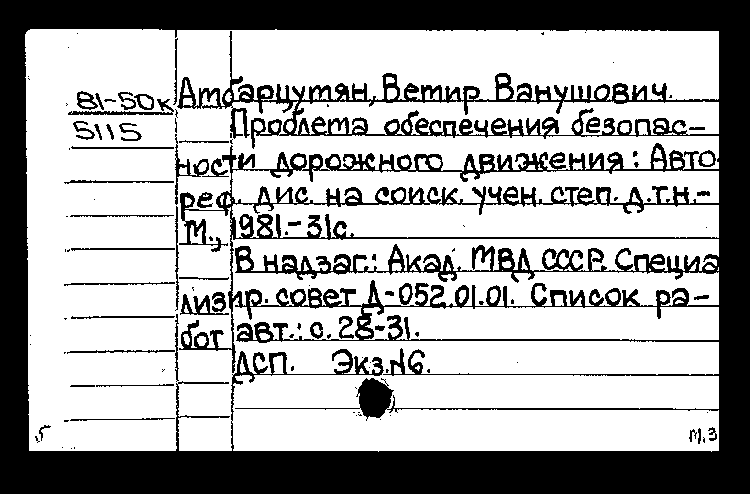 81-50к
5115
Амбарцумян, Вемир Ванушович.
Проблема обеспечения безопас-
ности дорожного движения: Авто-
реф. дис. на соиск. учен. степ. д.т.н.-
М., 1981.-31с.
В надзаг.: Акад. МВД СССР. Специа
лизир. совет Д-052.01.01. Список ра-
бот авт.: с.28-31.
ДСП. Экз.№6.
5 м.3